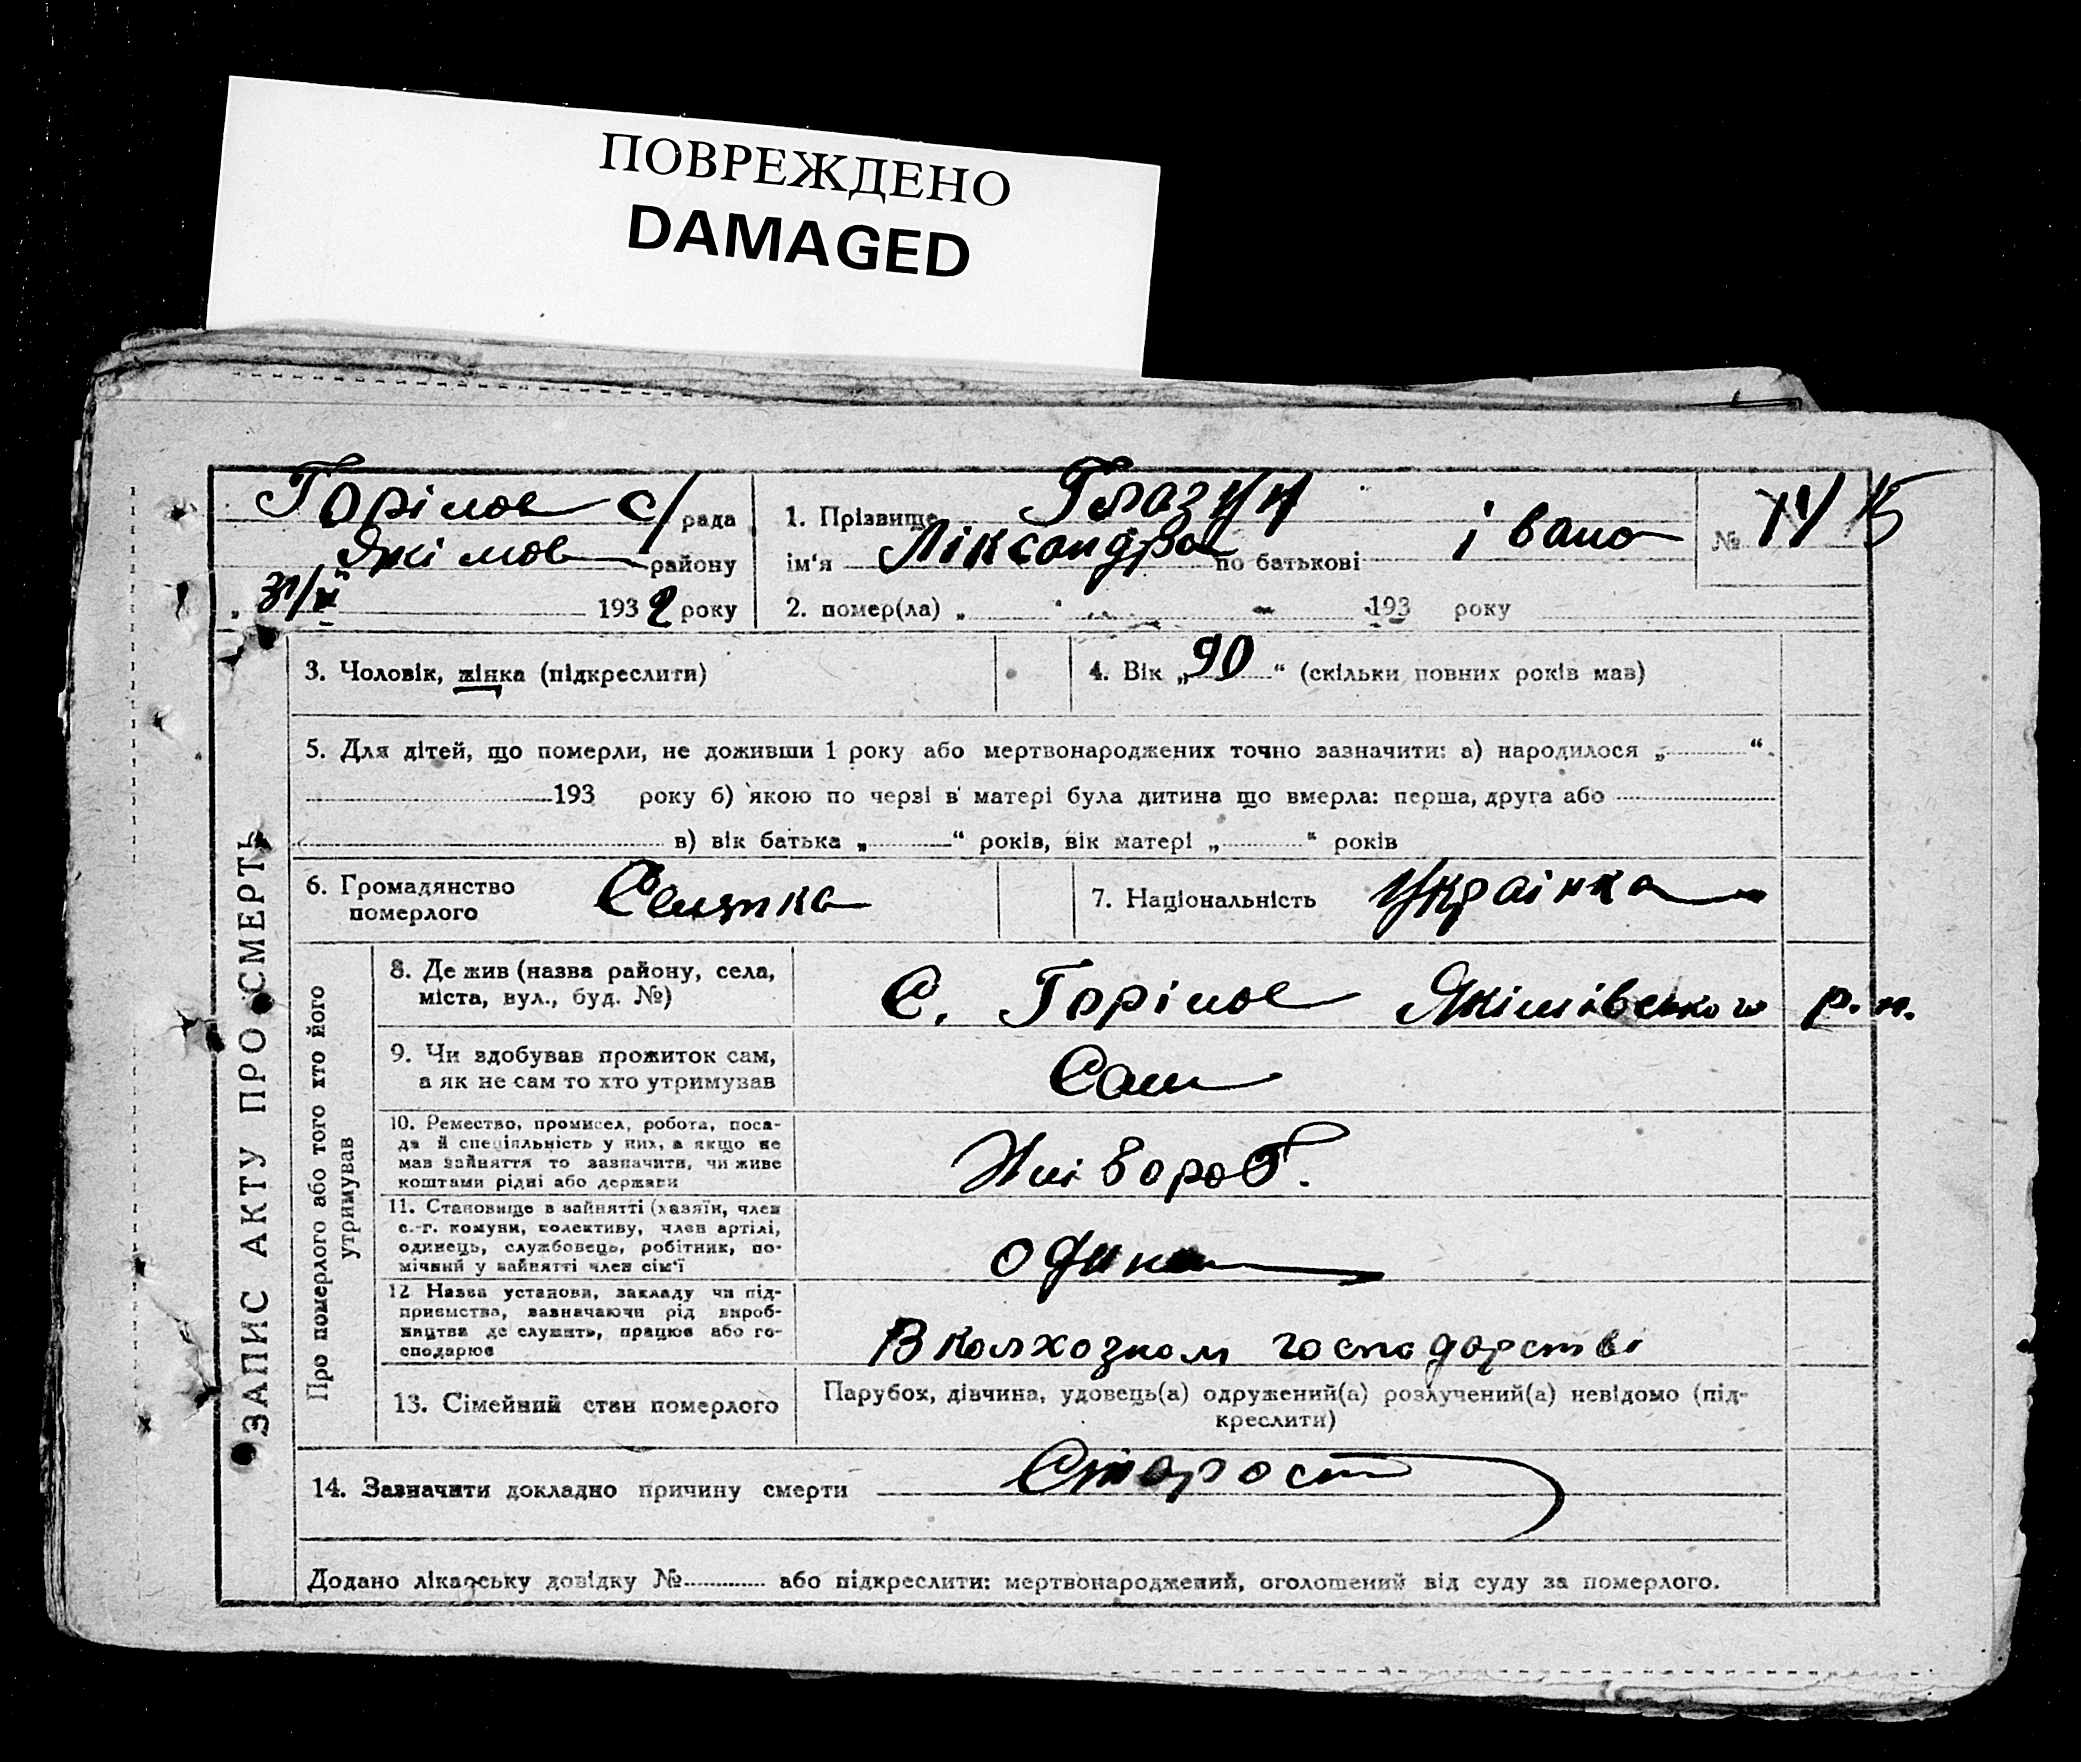 ПОВРЕЖДЕНО
DAMAGED
Горілое с/рада
Якімов району
„ 31/ 1932 року
1. Прізвище Глазун
ім'я Ліксандра по батькові івано
№ 15
2. помер(ла) „ 193 року
3. Чоловік, жінка (підкреслити)
4. Вік „ 90 “ (скільки повних років мав)
5. Для дітей, що померли, не доживши 1 року або мертвонароджених точно зазначити: а) народилося „ “
193 року б) якою по черзі в матері була дитина що вмерла: перша, друга або
в) вік батька „ “ років, вік матері „ “ років
6. Громадянство
померлого
Селянка
7. Національність Украінка
ЗАПИС АКТУ ПРО СМЕРТЬ
Про померлого або того хто його
утримував
8. Де жив (назва району, села,
міста, вул., буд. №)
С. Горілое Якімівського р.н.
9. Чи здобував прожиток сам,
а як не сам то хто утримував
Сам
10. Ремество, промисел, робота, поса-
да й спеціяльність у них, а якщо не
мав зайняття то зазначити, чи живе
коштами рідні або держави
Хліbороб.
11. Становище в зайнятті (хазяїн, член
с.-г. комуни, колективу, член артілі,
одинець, службовець, робітник, по-
мічний у зайнятті член сім'ї
12 Назва установи, закладу чи під-
приємства, зазначаючи рід вироб-
ництва де служить, працює або го-
сподарює
В колхозном господарстві
13. Сімейний стан померлого
Парубок, дівчина, удовець(а) одружений(а) розлучений(а) невідомо (під-
креслити)
14. Зазначити докладно причину смерти Старост
Додано лікарську довідку № або підкреслити: мертвонароджений, оголошений від суду за померлого.